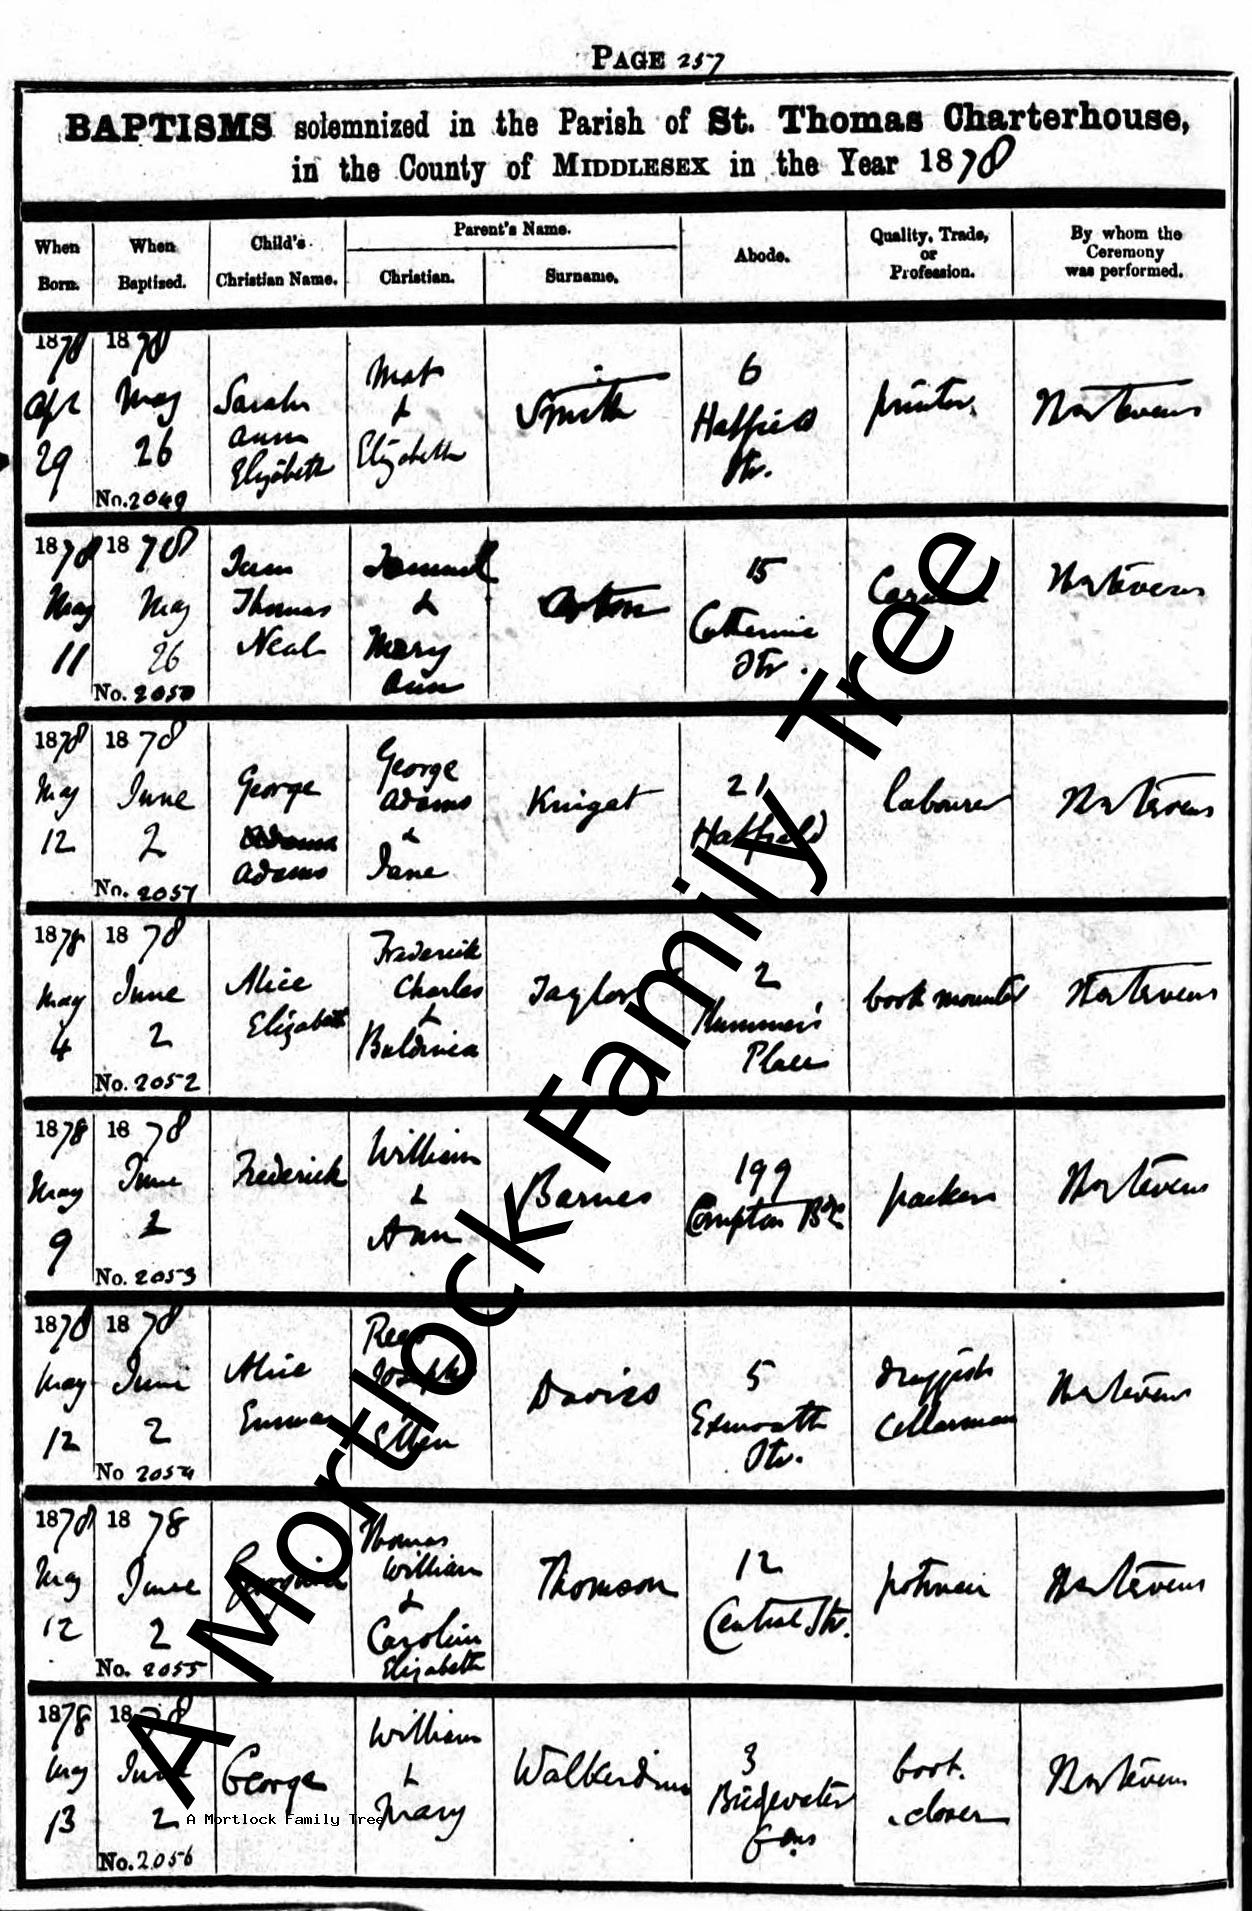 PAGE 257
BAPTISMS solemnized in the Parish of St. Thomas Charterhouse,
in the County of MIDDLESEX in the Year 1878
When Born.
When Baptized.
Child's Christian Name.
Parent's Name.
Christian.
Surname.
Abode.
Quality, Trade, or Profession.
By whom the Ceremony was performed.
1878
Apr
29
1878
May
26
No. 2049
Sarah
Ann
Elizabeth
&
Elizabeth
Smith
6
Hatfield
Str.
printer
1878
May
11
1878
May
26
No. 2050
Thomas
Neal
&
Mary
Ann
15
Catherine
Str.
1878
May
12
1878
June
2
No. 2051
George
Adams
George
Adams
&
Jane
Knight
21
Hatfield
labourer
1878
May
4
1878
June
2
No. 2052
Alice
Elizabeth
Frederick
Charles
&
Taylor
2
Place
book mounter
1878
May
9
1878
June
2
No. 2053
Frederick
William
&
Ann
Barnes
199
Compton
packer
1878
May
12
1878
June
2
No 2054
Alice
Emma
Joseph
Ellen
Davies
5
Exmouth
Str.
Cellarman
1878
May
12
1878
June
2
No. 2055
Thomas
William
&
Caroline
Elizabeth
Thomson
12
Central Str.
potman
1878
May
13
1878
June
2
No. 2056
George
William
&
Mary
3
Bridgewater
Gdns
boot
closer
A Mortlock Family Tree
A Mortlock Family Tree